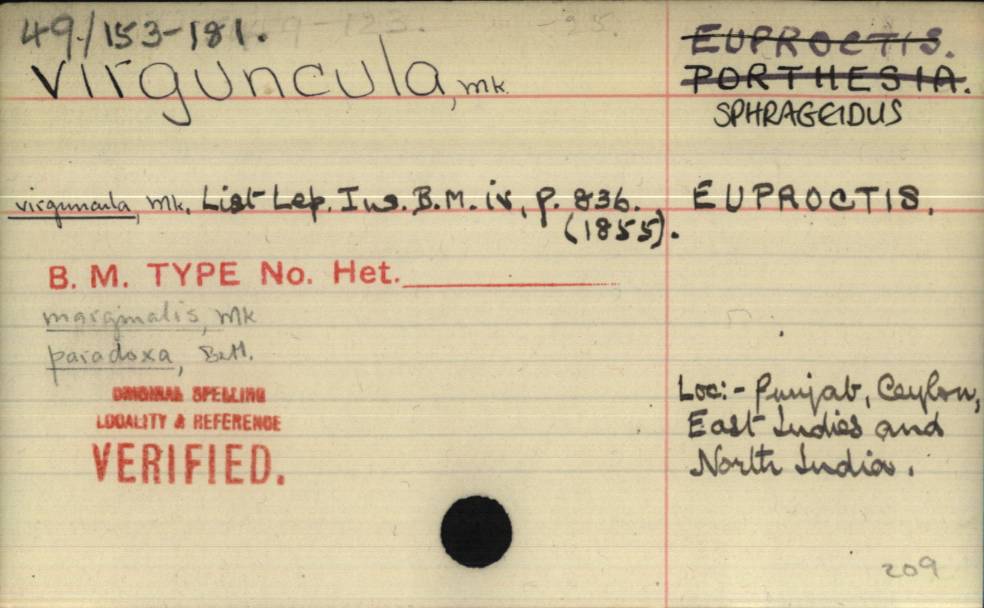 49./153-181.
virguncula, Mk.
EUPROCTIS.
PORTHESIA.
SPHRAGEIDUS
virguncula, Mk. List Lep. Ins. B.M. iv, p. 836.
(1855).
EUPROCTIS.
B. M. TYPE No. Het.
marginalis, Mk
paradoxa, Butl.
ORIGINAL SPELLING
LOCALITY & REFERENCE
VERIFIED.
Loc:- Punjab, Ceylon,
East Indies and
North India.
209